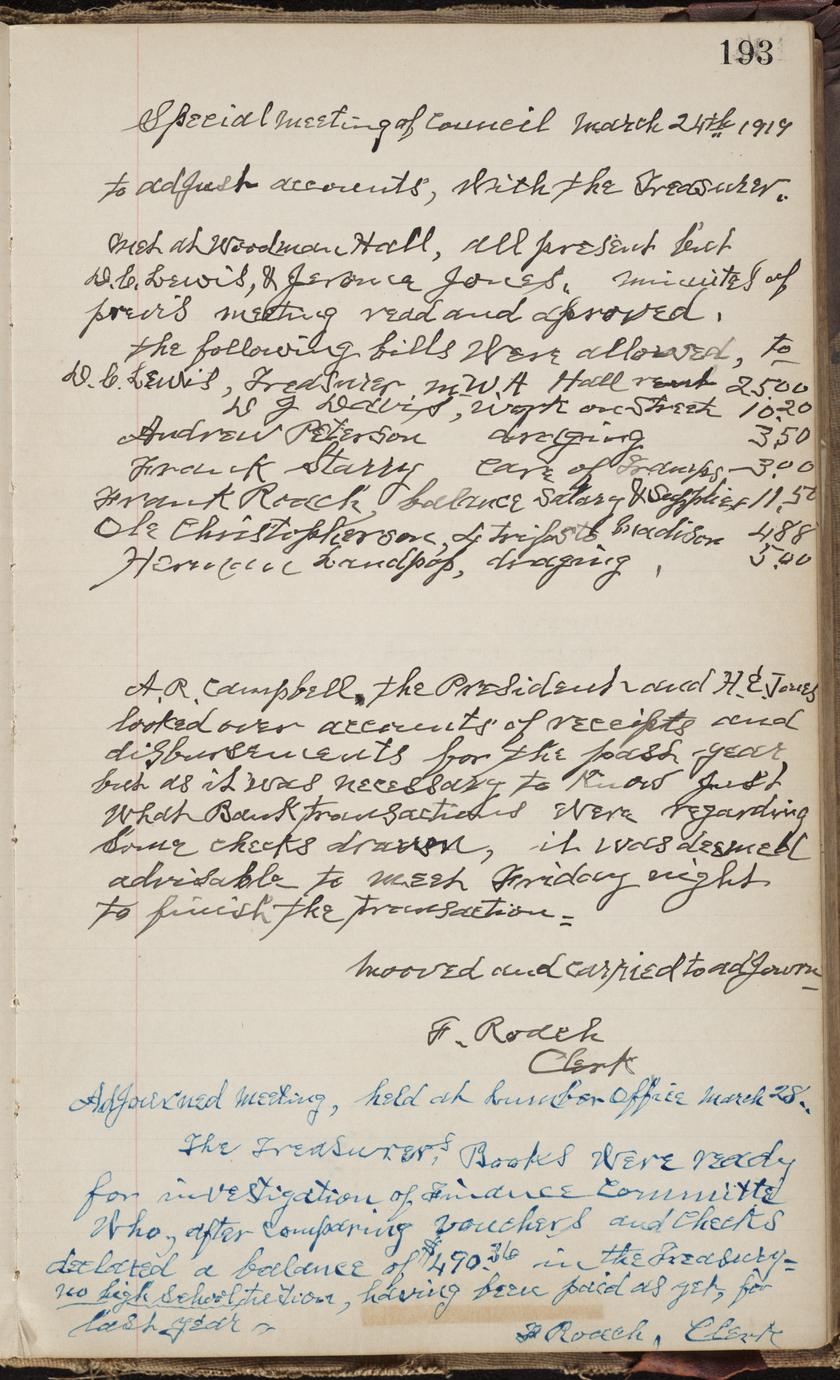 193
Special meeting of Council March 24th 1919
to adjust accounts, with the Treasurer.
met at Woodman Hall, all present but
D.C. Lewis, & Jerome Jones. minutes of
previs meeting read and aproved.
the following bills were allowed, to
D.C. Lewis, Treasurer M W A Hall rent 25.00
D J Davis, work on Street 10.20
Andrew Peterson draging 3.50
Frank Starry care of Tramps - 3.00
Frank Roach, balance Salary & Supplies 11.50
Ole Christopherson, 4 trips to Madison 4.88
Herman Landpop, draging, 5.00
A.R. Campbell, the President and H.E. Jones
looked over accounts of receipts and
disbursements for the past year,
but as it was necessary to Know just
what Bank transactions were regarding
Some checks drawn, it was deemed
advisable to meet Friday night
to finish the transaction =
Mooved and carried to adjourn
F. Roach
Clerk
Adjourned meeting, held at Lumber Office March 28.
The Treasurer's Books were ready
for investigation of Finance Committe
Who, after comparing vouchers and checks
declared a balance of $490.36 in the Treasury =
no high school tuition, having been paid as yet, for
last year
F Roach, Clerk